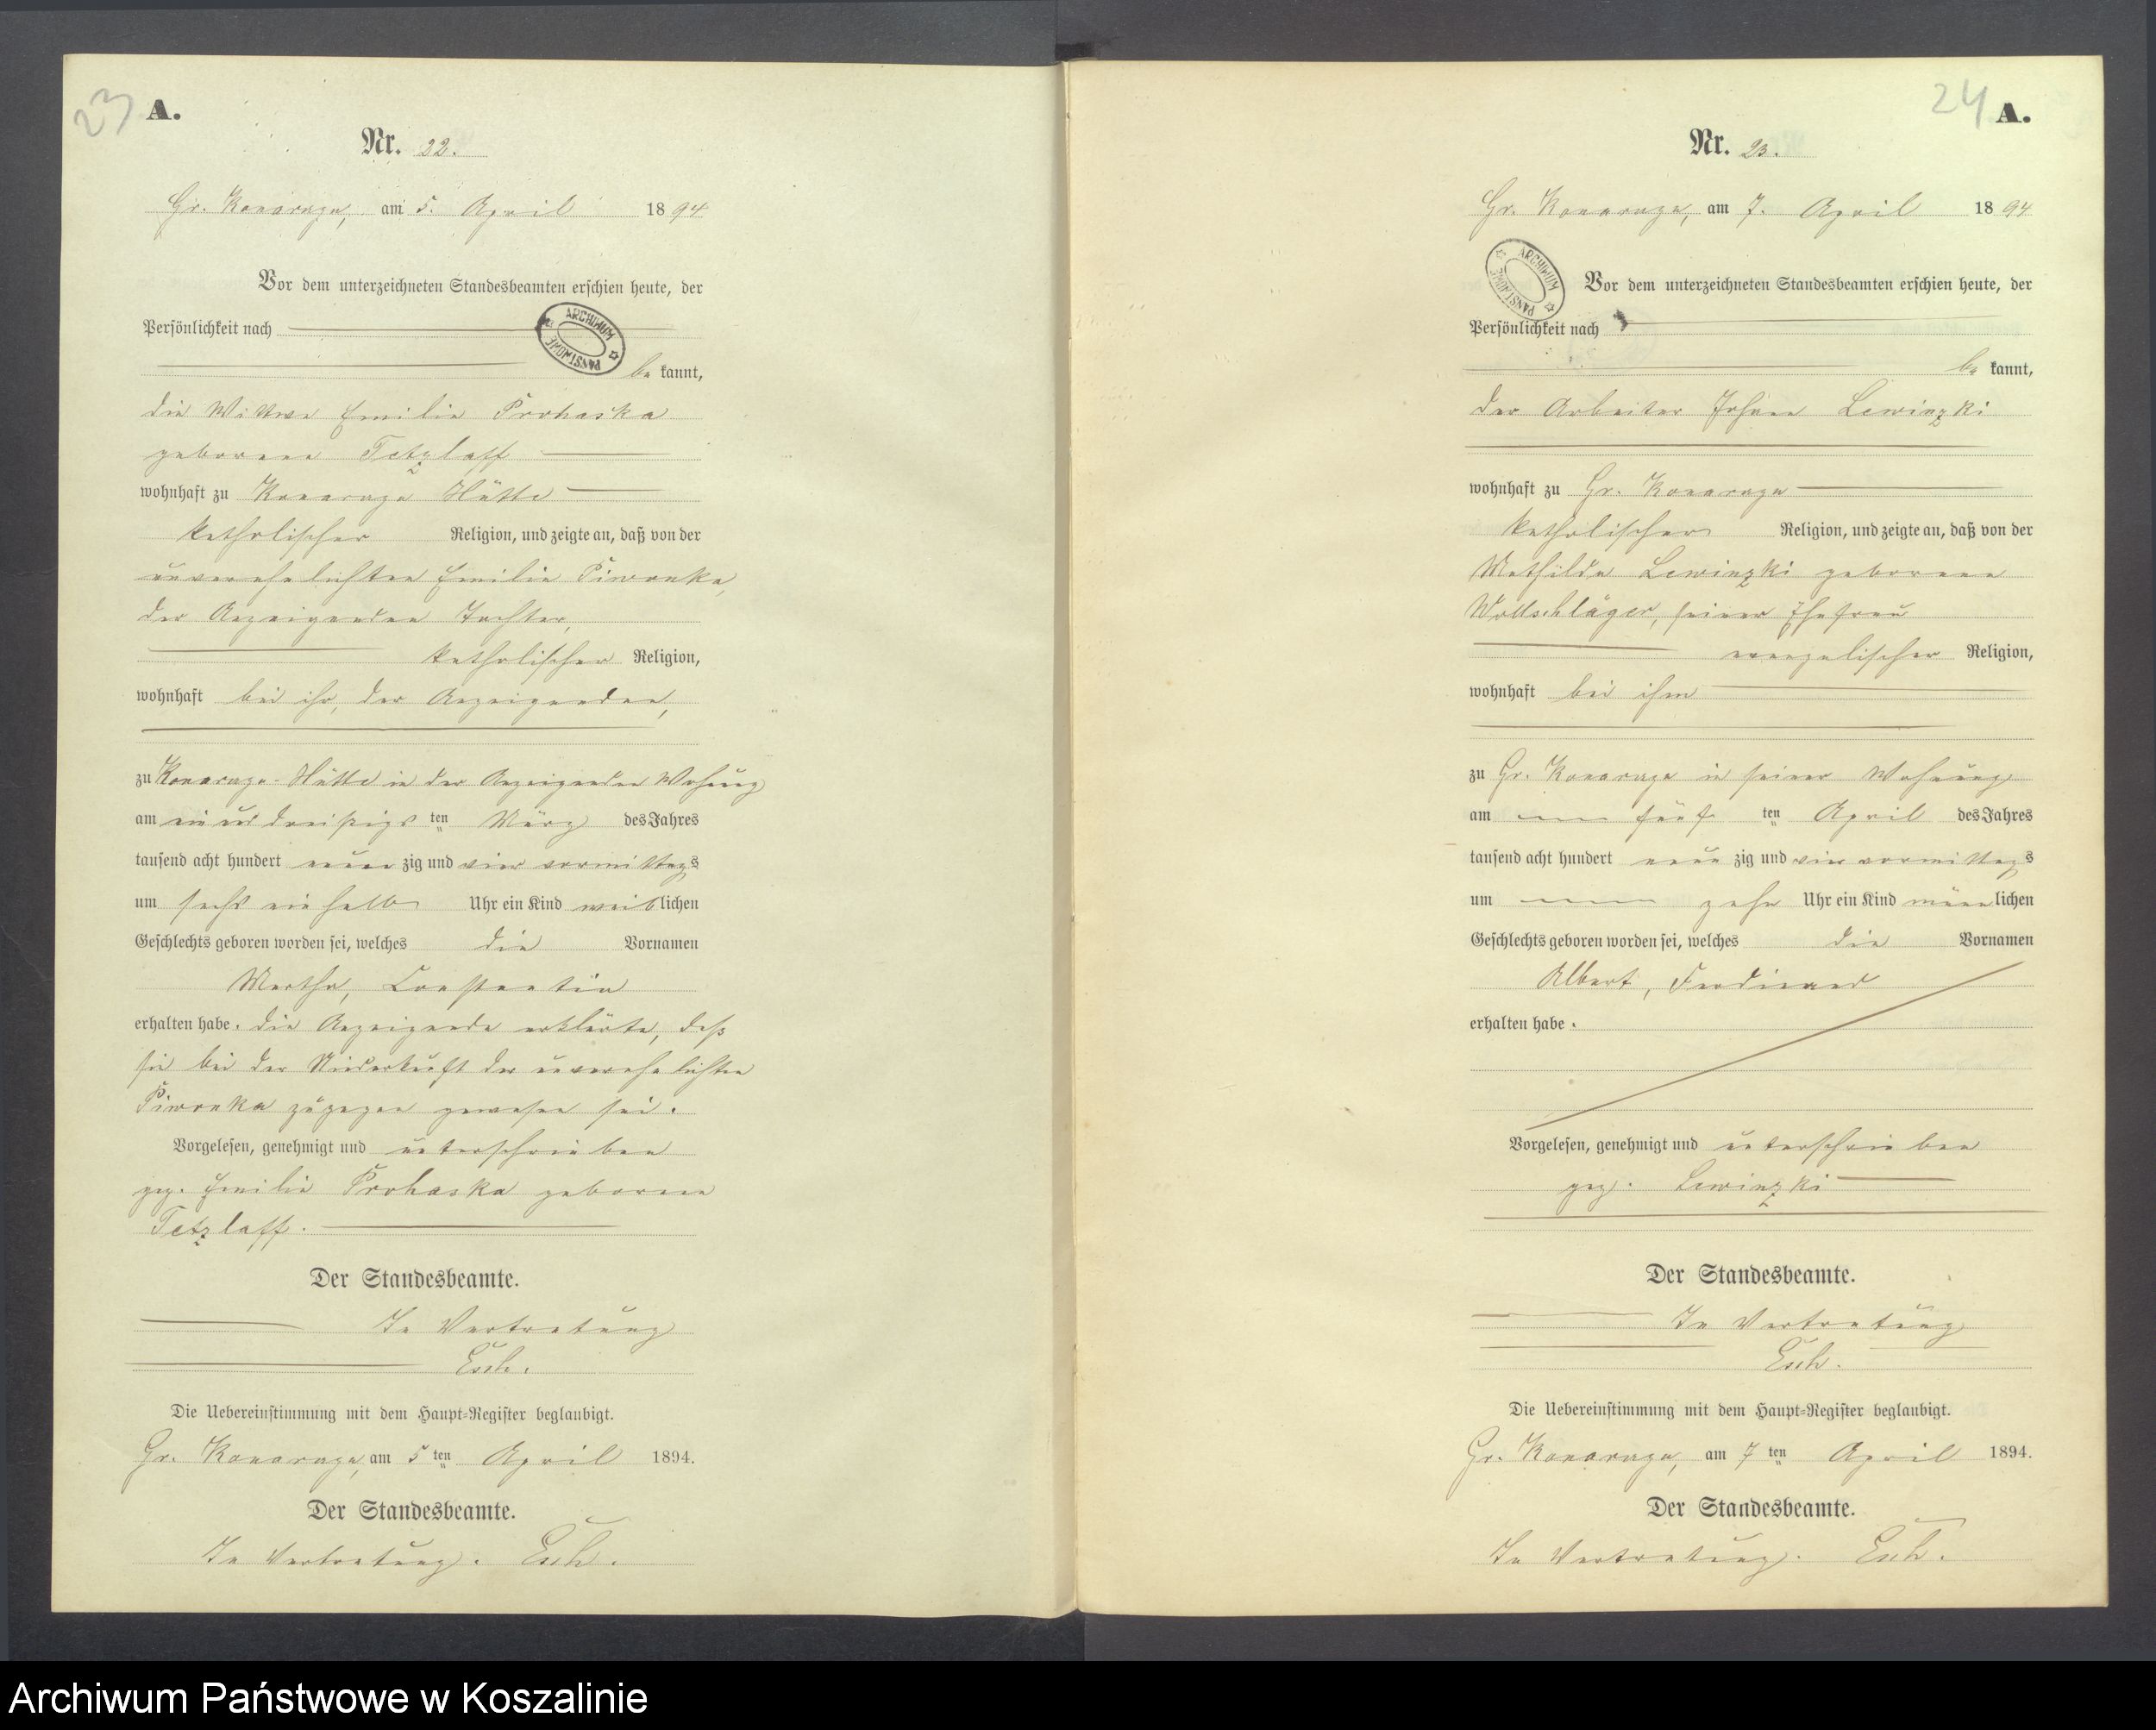 23
A.
Nr. 22.
Gr. Konarzyn, am 5. April 1894
Vor dem unterzeichneten Standesbeamten erschien heute, der
Persönlichkeit nach
ARCHIWUM PAŃSTWOWE
be kannt,
die Wittwe Emilie Prohaska
geborene Tetzlaff
wohnhaft zu Konarzyn Hütte
katholischer Religion, und zeigte an, daß von der
unverehelichten Emilie Piwonka,
der Anzeigenden Tochter,
katholischer Religion,
wohnhaft bei ihr, der Anzeigenden,
zu Konarzyn-Hütte in der Anzeigenden Wohnung
am ein und dreißigs ten März des Jahres
tausend acht hundert neun zig und vier vormittags
um sechs ein halb Uhr ein Kind weiblichen
Geschlechts geboren worden sei, welches die Vornamen
Martha, Constantia
erhalten habe. Die Anzeigende erklärte, daß
sie bei der Niederkunft der unverehelichten
Piwonka zugegen gewesen sei.
Vorgelesen, genehmigt und unterschrieben
gez. Emilie Prohaska geborene
Tetzlaff.
Der Standesbeamte.
In Vertretung
Esch.
Die Uebereinstimmung mit dem Haupt-Register beglaubigt.
Gr. Konarzyn, am 5 ten April 1894.
Der Standesbeamte.
In Vertretung. Esch.
24
A.
Nr. 23.
Gr. Konarzyn, am 7. April 1894
ARCHIWUM PAŃSTWOWE
Vor dem unterzeichneten Standesbeamten erschien heute, der
Persönlichkeit nach
be kannt,
der Arbeiter Johann Lewinzki
wohnhaft zu Gr. Konarzyn
katholischer Religion, und zeigte an, daß von der
Mathilde Lewinzki geborene
Wollschläger, seiner Ehefrau
evangelischer Religion,
wohnhaft bei ihm
zu Gr. Konarzyn in seiner Wohnung
am fünf ten April des Jahres
tausend acht hundert neun zig und vier vormittags
um zehn Uhr ein Kind männlichen
Geschlechts geboren worden sei, welches die Vornamen
Albert, Ferdinand
erhalten habe.
Vorgelesen, genehmigt und unterschrieben
gez. Lewinzki
Der Standesbeamte.
In Vertretung
Esch.
Die Uebereinstimmung mit dem Haupt-Register beglaubigt.
Gr. Konarzyn, am 7 ten April 1894.
Der Standesbeamte.
In Vertretung. Esch.
Archiwum Państwowe w Koszalinie